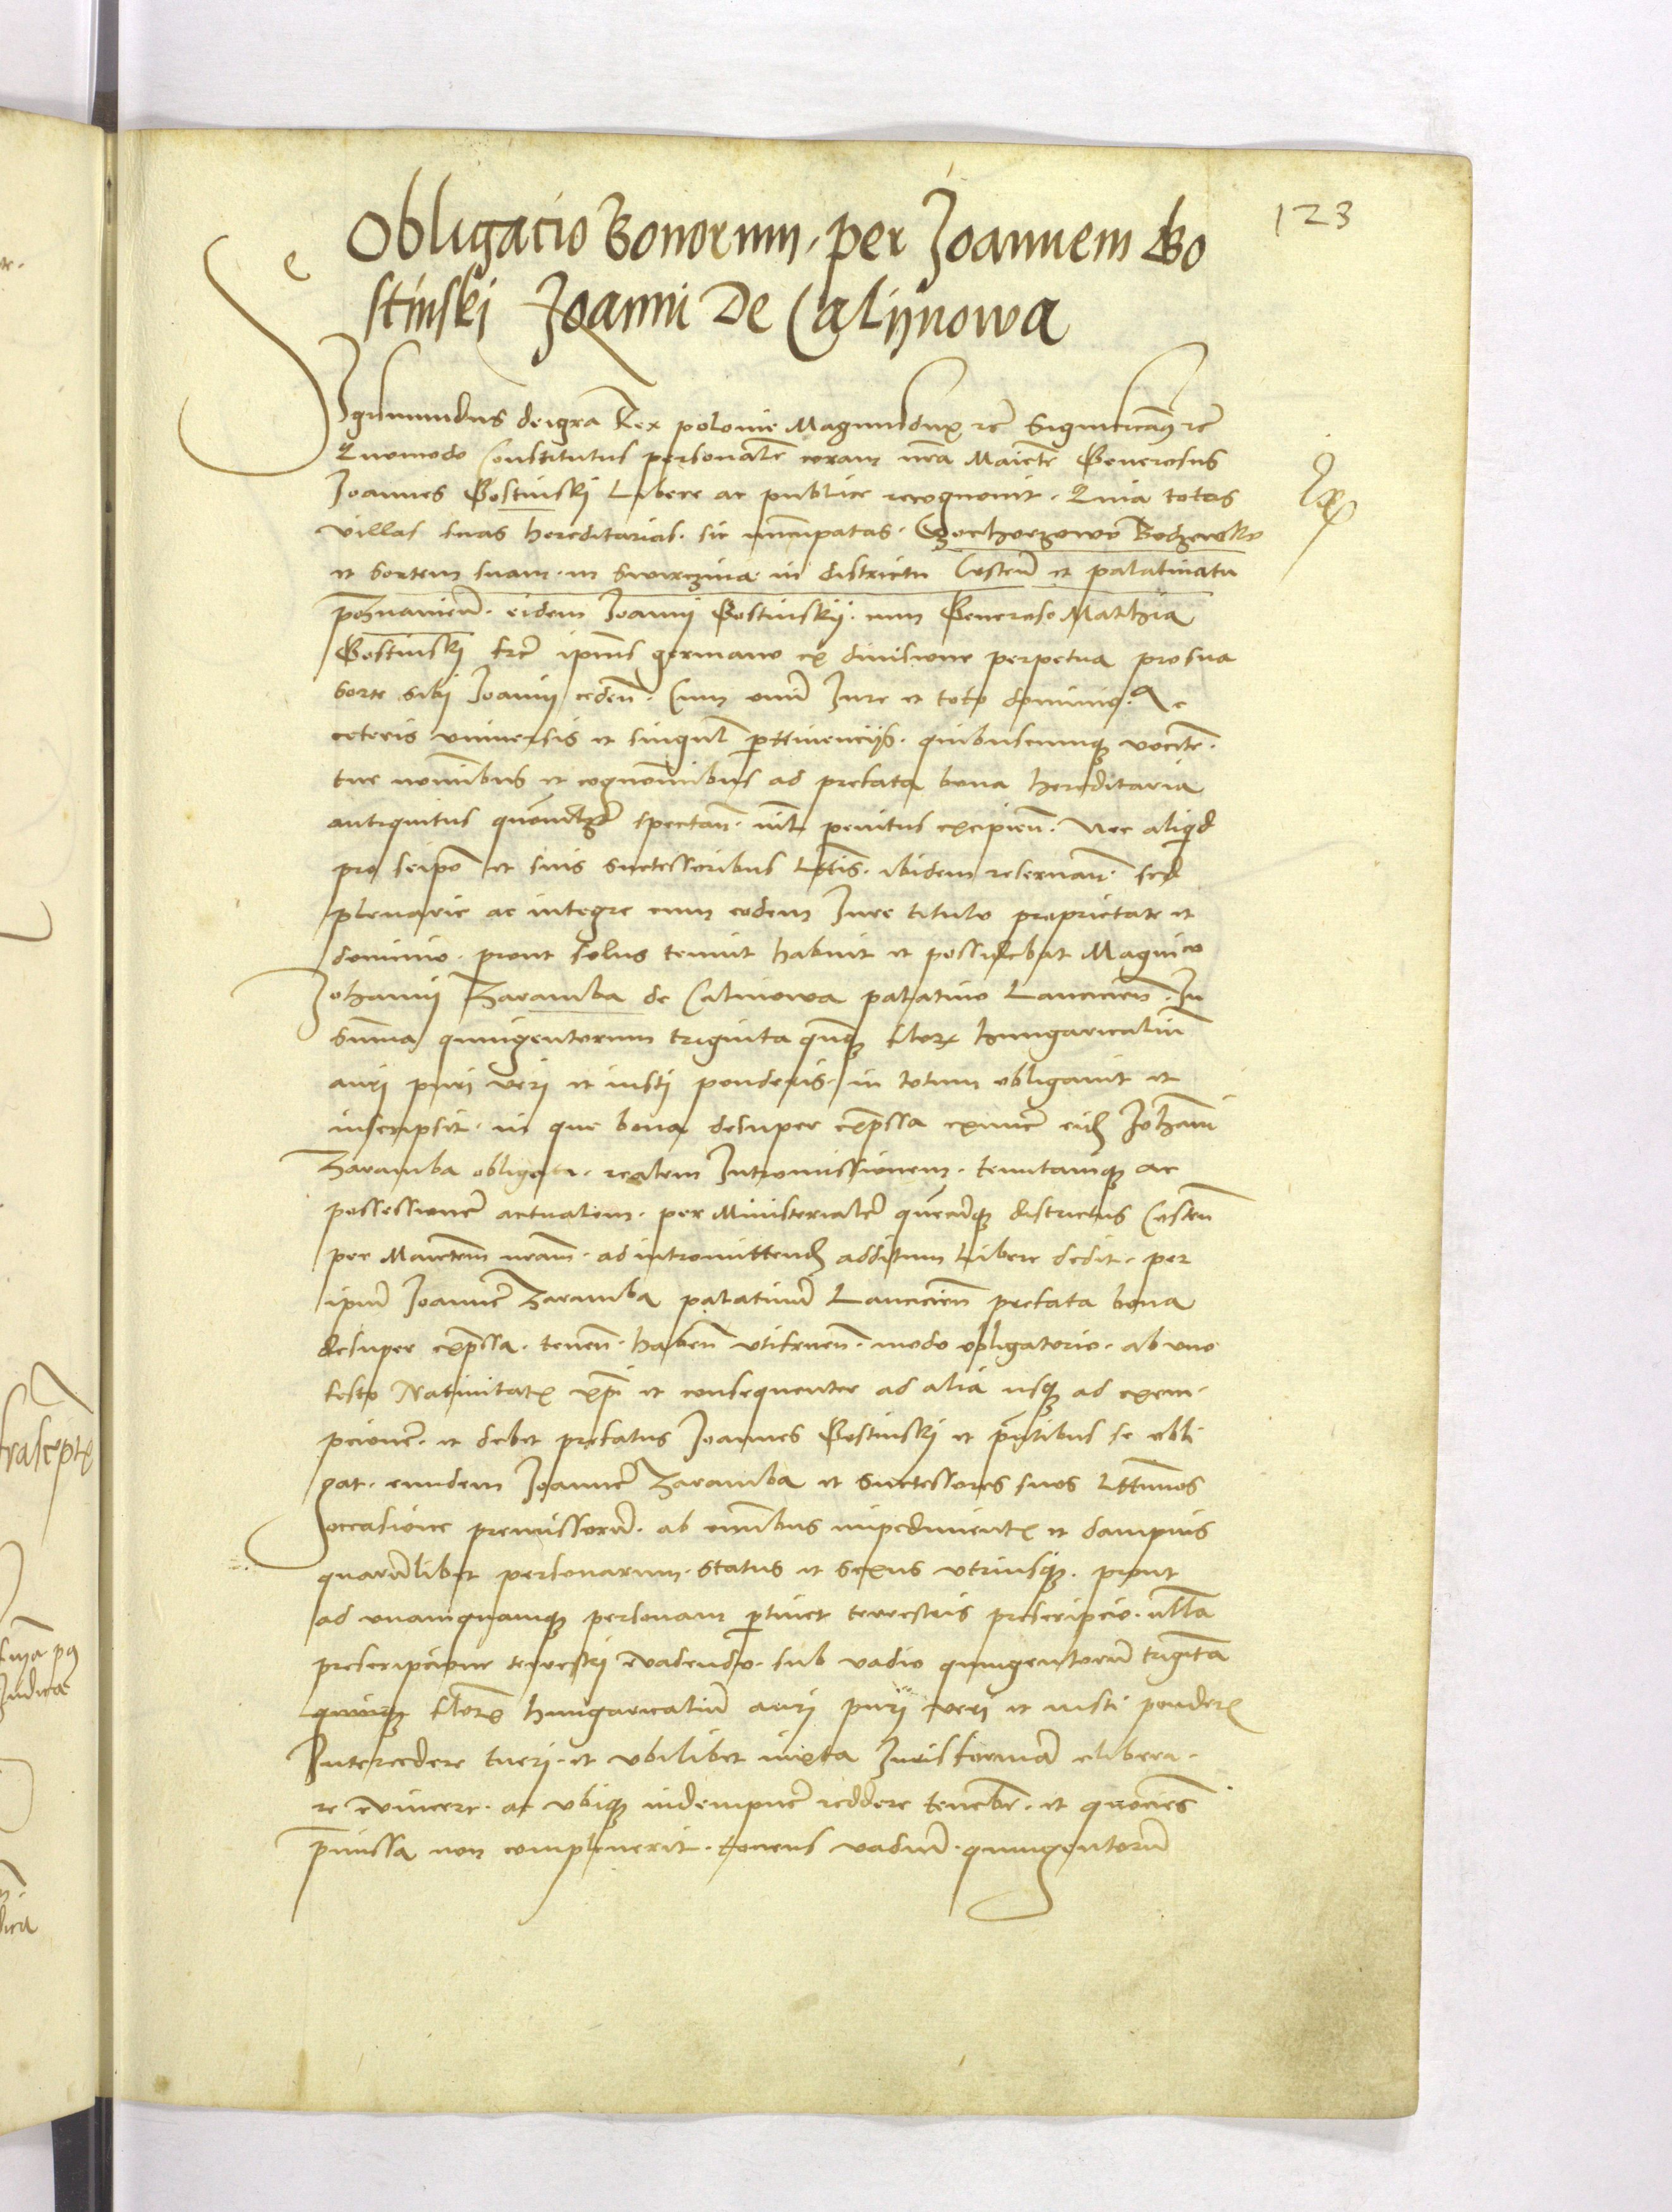 123
Obligacio Bonorum per Joannem Go
stinski Joanni De Calijnowa
Sigismundus dei gra Rex polonie Magnusdux rc Significam9 rc
Quomodo Constitutus personalr coram nra Maiestte Generosus
Joannes Gostinski Libere ac publice recognovit. Quia totas
villas suas hereditarias. sic nuncupatas.
et sortem suam in Swirczina in districtu Costen et palatinatu
poznanien. eidem Joanni Gostinskij. cum Generoso Mathia
Gostinski fre ipius germano ex divisione perpetua pro sua
sorte sibi Joanni ceden. Cum omi Jure et toto dominio. Ac
ceteris universis et singul pertinencijs. quibuscumq vocite.
tur nominibus et cognominibus ad prefata bona hereditaria
antiquitus spectan. nil penitus excipien. Nec aliqid
pro seipo et suis successoribus lttis. ibidem reservan. sed
plenarie ac integre cum eodem Jure titulo proprietate et
dominio. prout solus tenuit habuit et possidebat Magnico
Johanni Zaramba de Calinowa palatino Lancicien. In
summa quingentorum triginta quinq flor hungaricaliu
auri puri veri et iusti ponderis. in totum obligavit et
inscripsit. in que bona desuper expssa extunc eid Johani
Zaramba obligata. realem Intromissionem. tenutamq ac
possessione actualem. per Ministeriale quecunq districtus Costen
per Maiestem nram. ad intromittend additum libere dedit. per
ipum Joanne Zaramba palatinu Lancicien prefata bona
desuper expssa. tenen. haben utifruen. modo obligatorio. ab uno
festo Nativitatis xpi et consequenter ad alia usq ad exem.
pcione. et debet prefatus Joannes Gostinski et pntibus se obli
gat. eundem Joanne Zaramba et successores suos lttimos
occasione premissoru. ab omibus impedimentis et dampnis
quarulibet personarum. status et sexus utriusq. prout
ad unamquamq personam ptinet terrestris prescripcio. ulla
prescripcione terrestri evadendo. sub vadio quingentoru triginta
quinq flor hungaricaliu auri puri veri et iusti ponderis
Intercedere tueri. et ubilibet iuxta Juris forma elibera.
re evincere. ac ubiq indempne reddere teneb. et quocies
pmissa non compleverit. tociens vadiu quingentoru